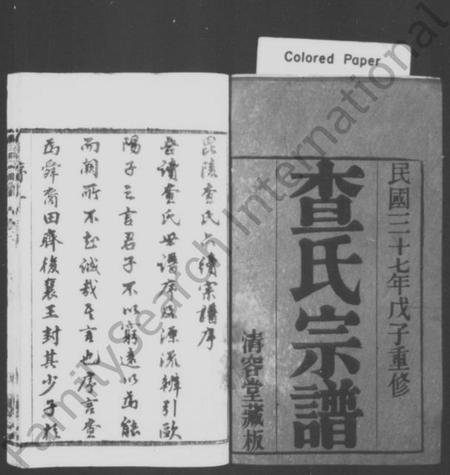 Colored Paper
民國三十七年戊子重修
查氏宗譜
清容堂藏板
毘陵查氏六續宗譜序
嘗讀查氏世譜序及源流辨引歐
陽子之言君子不以窮遠以為能
而闕所不知誠哉是言也序言查
為舜裔田齊後襄王封其少子於
FamilySearch International